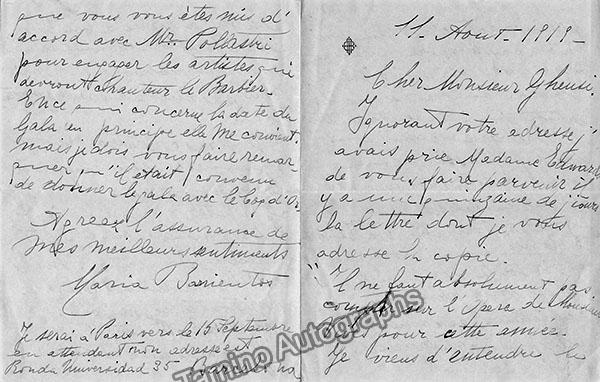 11 - Aout - 1919 -
Cher Monsieur Gheusi.
Ignorant votre adresse j'
avais prié Madame Edwards
de vous faire parvenir il
y a une quinzaine de jours
la lettre dont je vous
adresse la copie.
"Il ne faut absolument pas
compter sur l'Opera de
pour cette année.
Je viens d'entendre
que vous vous êtes mis d'
accord avec Mr. Pollastri
pour engager les artistes qui
devront chanter le Barbier.
En ce qui concerne la date du
Gala en principe elle me convient
mais je dois vous faire remar
quer qu'il était convenu
de donner le gala avec le Coq d'Or
Agreez l'assurance de
mes meilleurs sentiments
Maria Barrientos
Je serai à Paris vers le 15 Septembre
en attendant mon adresse est
Ronda Universidad 35
Tamino Autographs